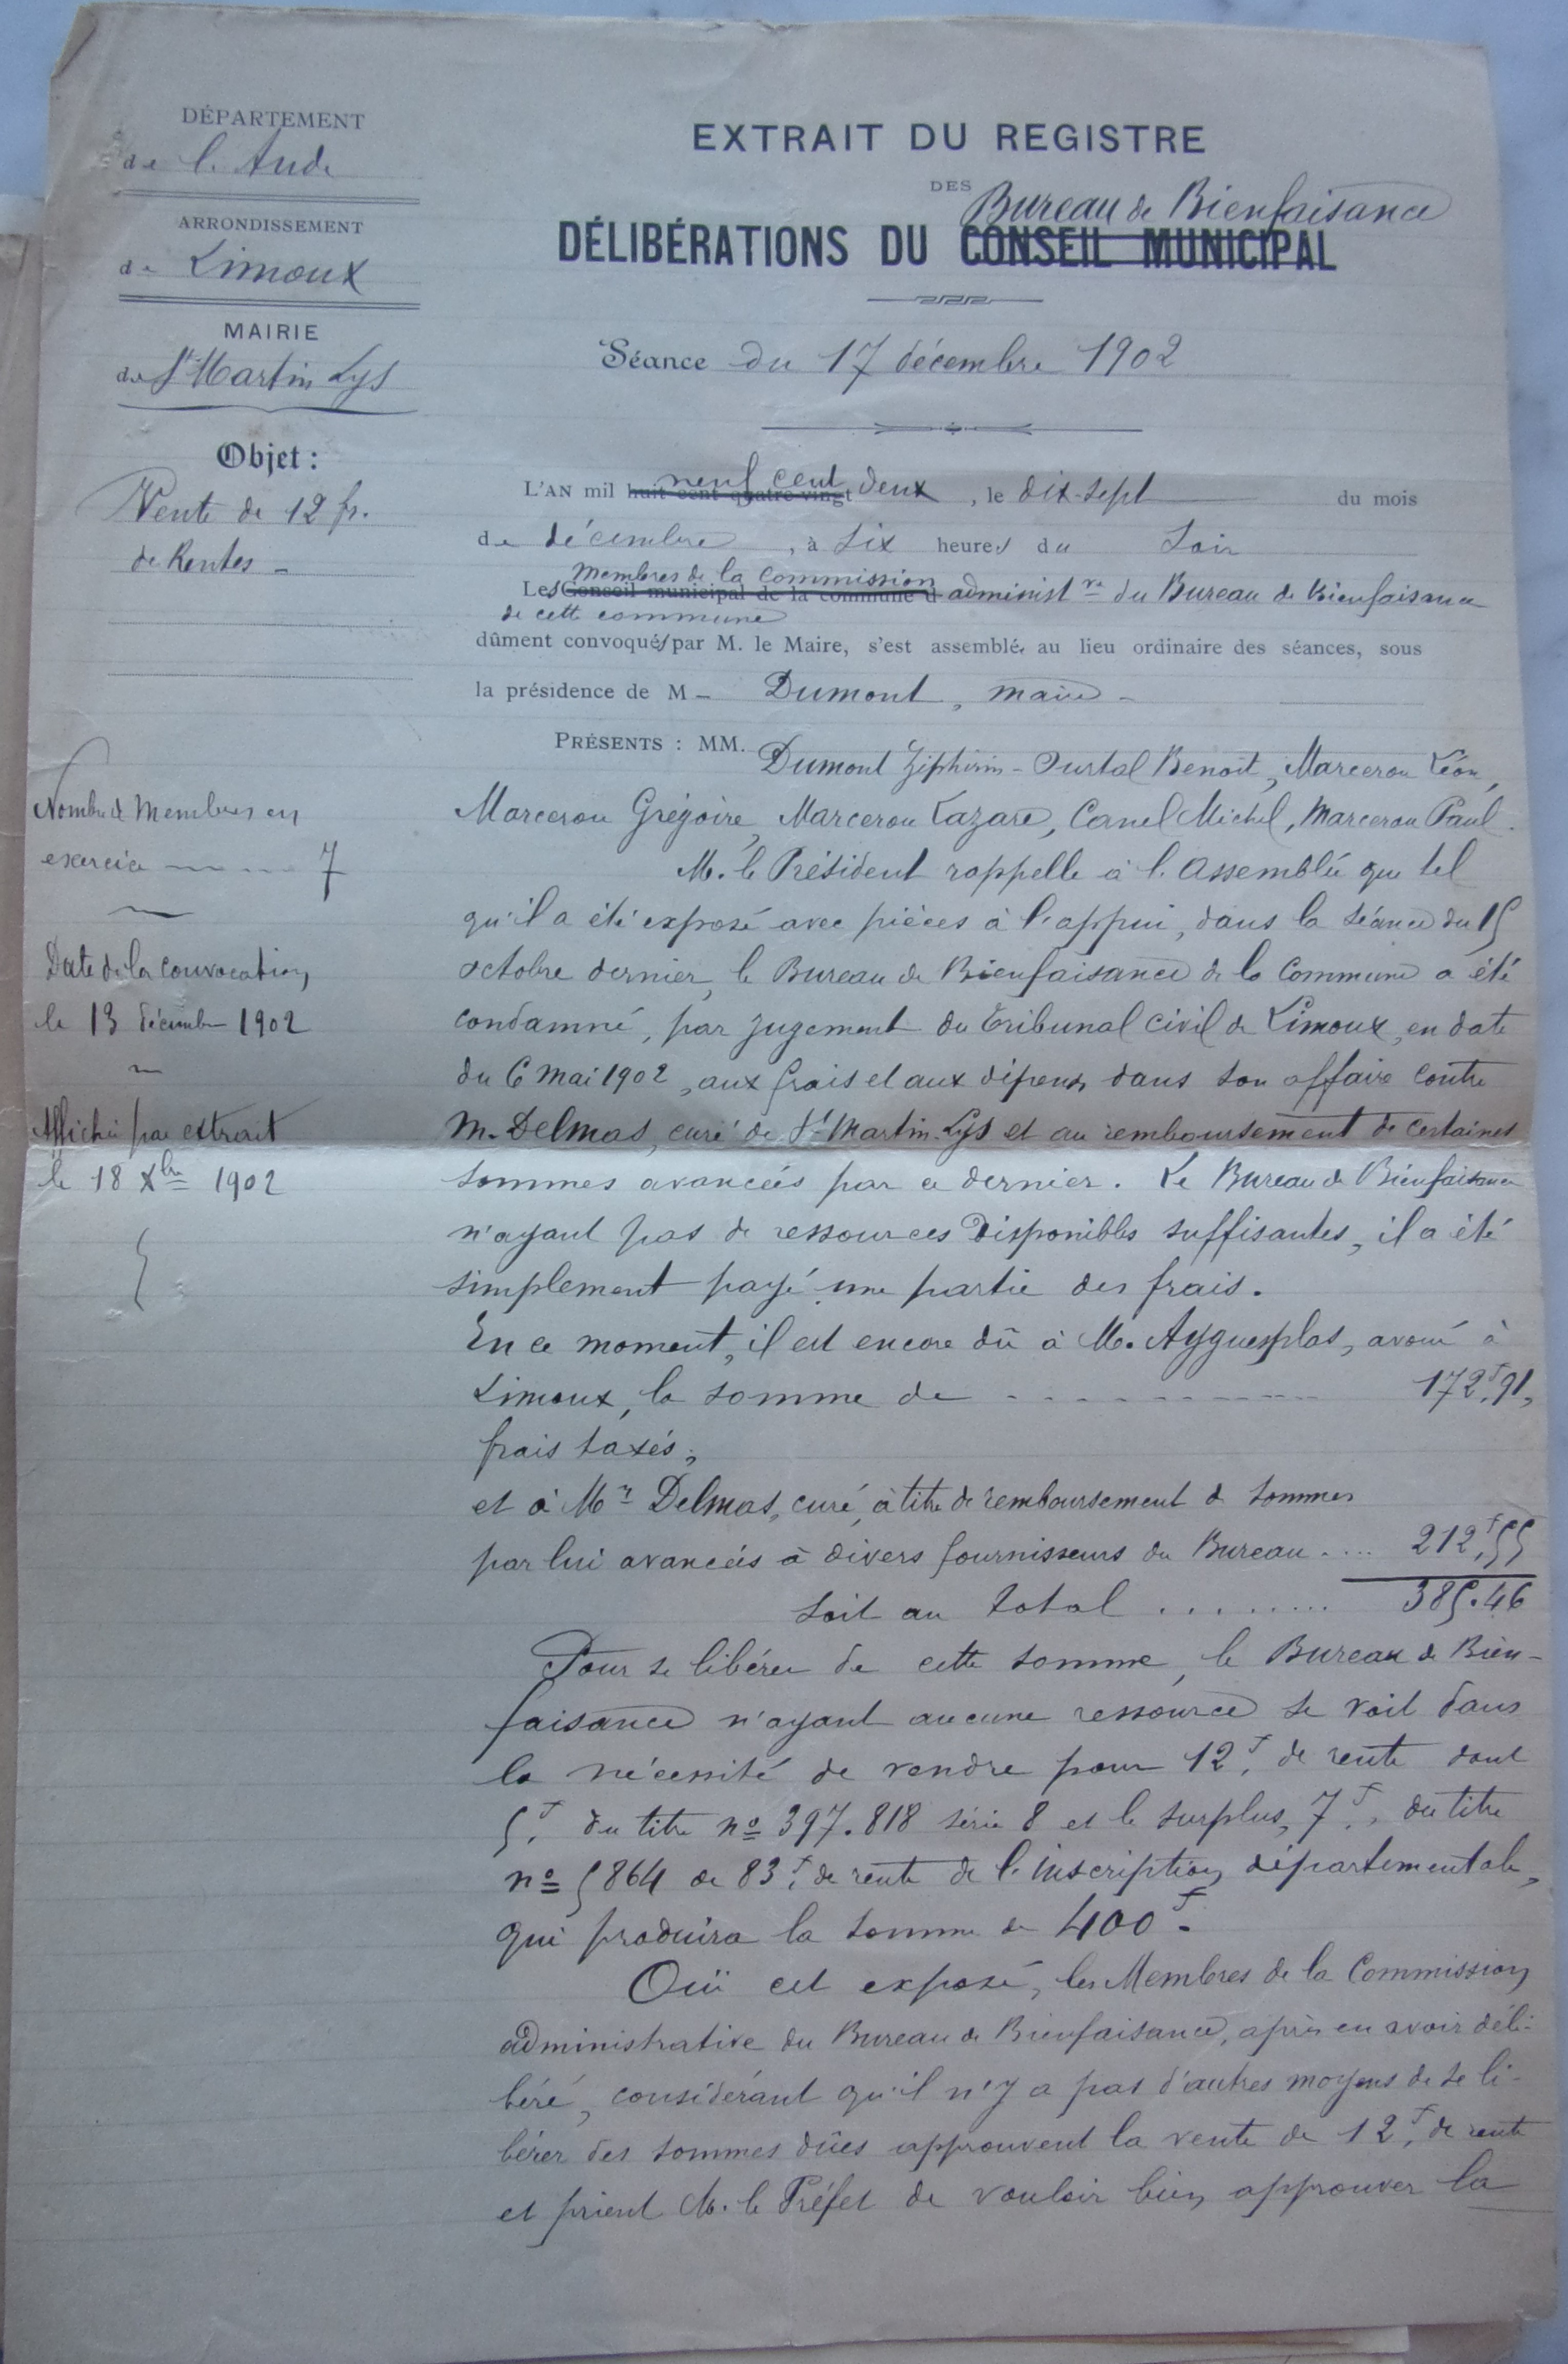 DÉPARTEMENT
de l'Aude
ARRONDISSEMENT
de Limoux
MAIRIE
de St Martin Lys
Objet :
Vente de 12 fr.
de Rentes -
Nombre de Membres en
exercice 7
Date de la convocation
le 13 décembre 1902
Affiché par extrait
le 18 Xbre 1902
EXTRAIT DU REGISTRE
DES
Bureau de Bienfaisance
DÉLIBÉRATIONS DU CONSEIL MUNICIPAL
Séance du 17 décembre 1902
neuf cent
L'AN mil huit cent quatre-vingt deux, le dix-sept du mois
de décembre, à six heures du soir
membres de la commission
Les Conseil municipal de la commune d administve du Bureau de bienfaisance
de cette commune
dûment convoqués par M. le Maire, s'est assemblé, au lieu ordinaire des séances, sous
la présidence de M - Dumont, maire -
PRÉSENTS : MM. Dumont Zéphirin - Ourtal Benoit, Marcerou Léon,
Marcerou Grégoire, Marcerou Lazare, Canel Michel, Marcerou Paul.
M. le Président rappelle à l'Assemblée que tel
qu'il a été exposé avec pièces à l'appui, dans la séance du 15
octobre dernier, le Bureau de Bienfaisance de la Commune a été
condamné, par jugement du Tribunal civil de Limoux, en date
du 6 mai 1902, aux frais et aux dépens dans son affaire contre
M. Delmas, curé de St Martin-Lys et au remboursement de certaines
sommes avancées par ce dernier. Le Bureau de Bienfaisance
n'ayant pas de ressources disponibles suffisantes, il a été
simplement payé une partie des frais.
En ce moment, il est encore dû à Me. Ayguesplas, avoué à
Limoux, la somme de - - - - - - - - - - 172f,91,
frais taxés,
et à Mr Delmas, curé, à titre de remboursement de sommes
par lui avancées à divers fournisseurs du Bureau .... 212f,55
soit au total ........ 385.46
Pour se libérer de cette somme, le Bureau de Bien-
faisance n'ayant aucune ressource se voit dans
la nécessité de vendre pour 12f. de rente dont
5f. du titre no 397.818 série 8 et le surplus, 7f., du titre
no 5864 de 83f. de rente de l'inscription départementale,
qui produira la somme de 400f.
Ouï cet exposé, les Membres de la Commission
administrative du Bureau de Bienfaisance, après en avoir déli-
béré, considérant qu'il n'y a pas d'autres moyens de se li-
bérer des sommes dûes approuvent la vente de 12f. de rente
et prient M. le Préfet de vouloir bien approuver la